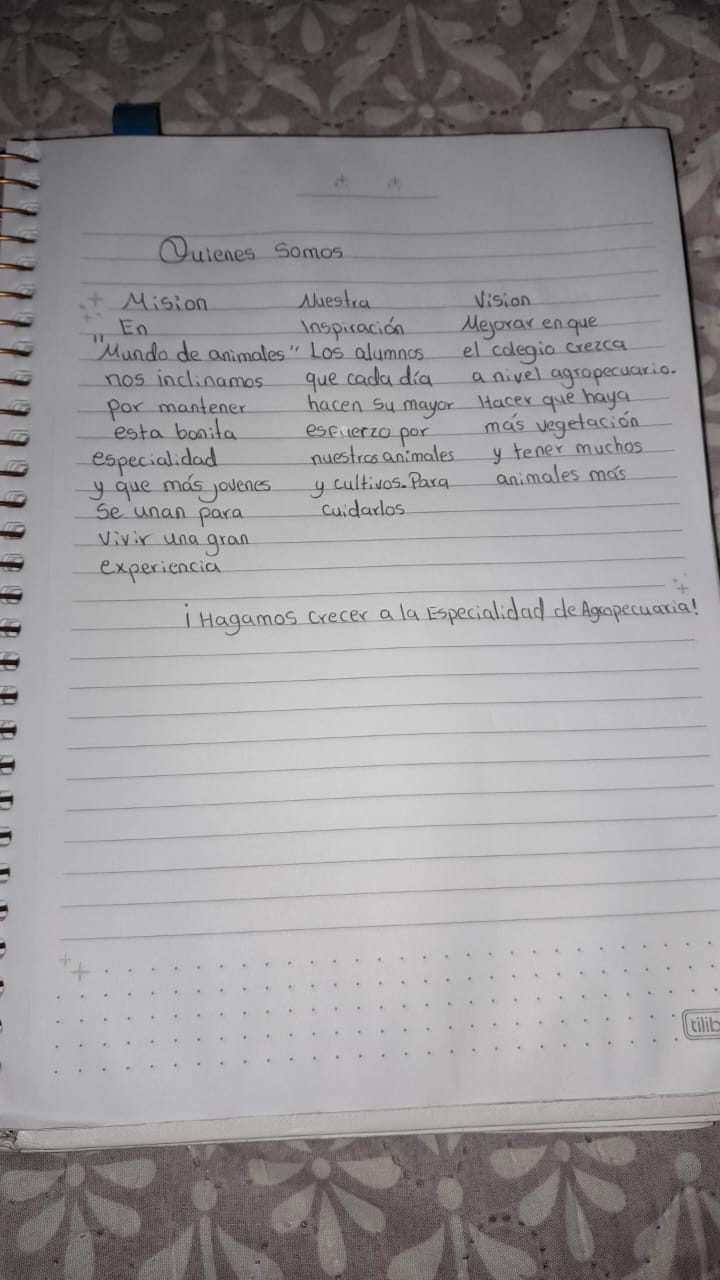 Quienes Somos
Mision
En
"Mundo de animales"
nos inclinamos
por mantener
esta bonita
especialidad
y que más jovenes
se unan para
vivir una gran
experiencia
Nuestra
Inspiración
Los alumnos
que cada día
hacen su mayor
esfuerzo por
nuestros animales
y cultivos. Para
cuidarlos
Vision
Mejorar en que
el colegio crezca
a nivel agropecuario.
Hacer que haya
más vegetación
y tener muchos
animales más
¡Hagamos crecer a la Especialidad de Agropecuaria!